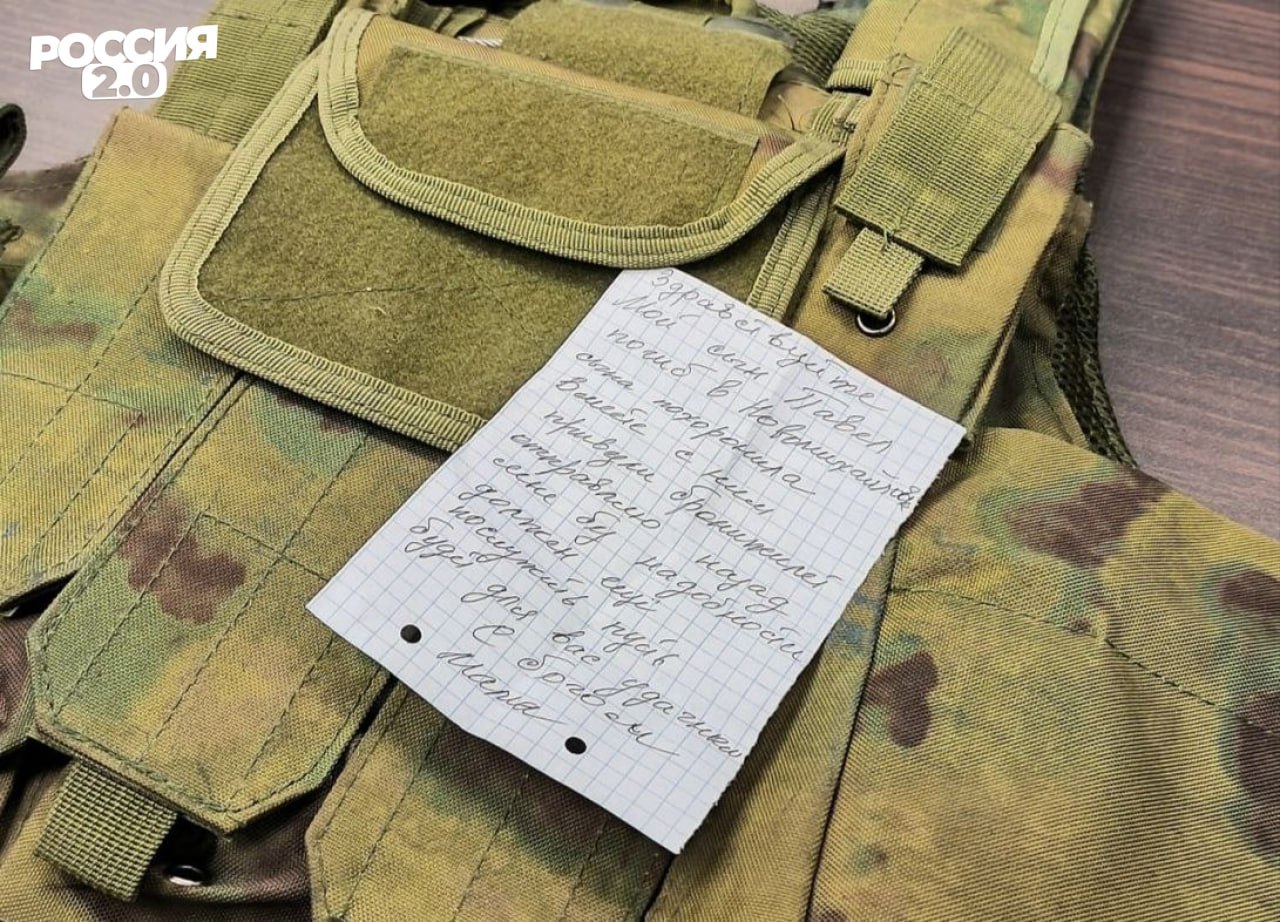 РОССИЯ
2.0
Здравствуйте
Мой сын Павел
погиб в Новомихайловке
сына похоронила
Вместе с ним
привезли бронижилет
отправляю назад
мне без надобности
должен ещё
послужить пусть
будет для вас удачным
С богом
Мама